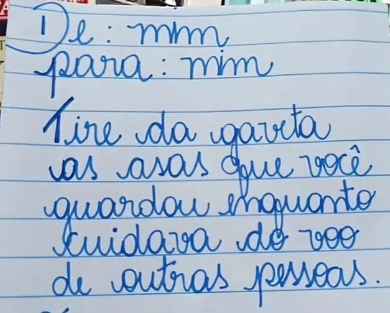 De: mim
para: mim
Tire da gaveta
as asas que você
guardou enquanto
cuidava do voo
de outras pessoas.